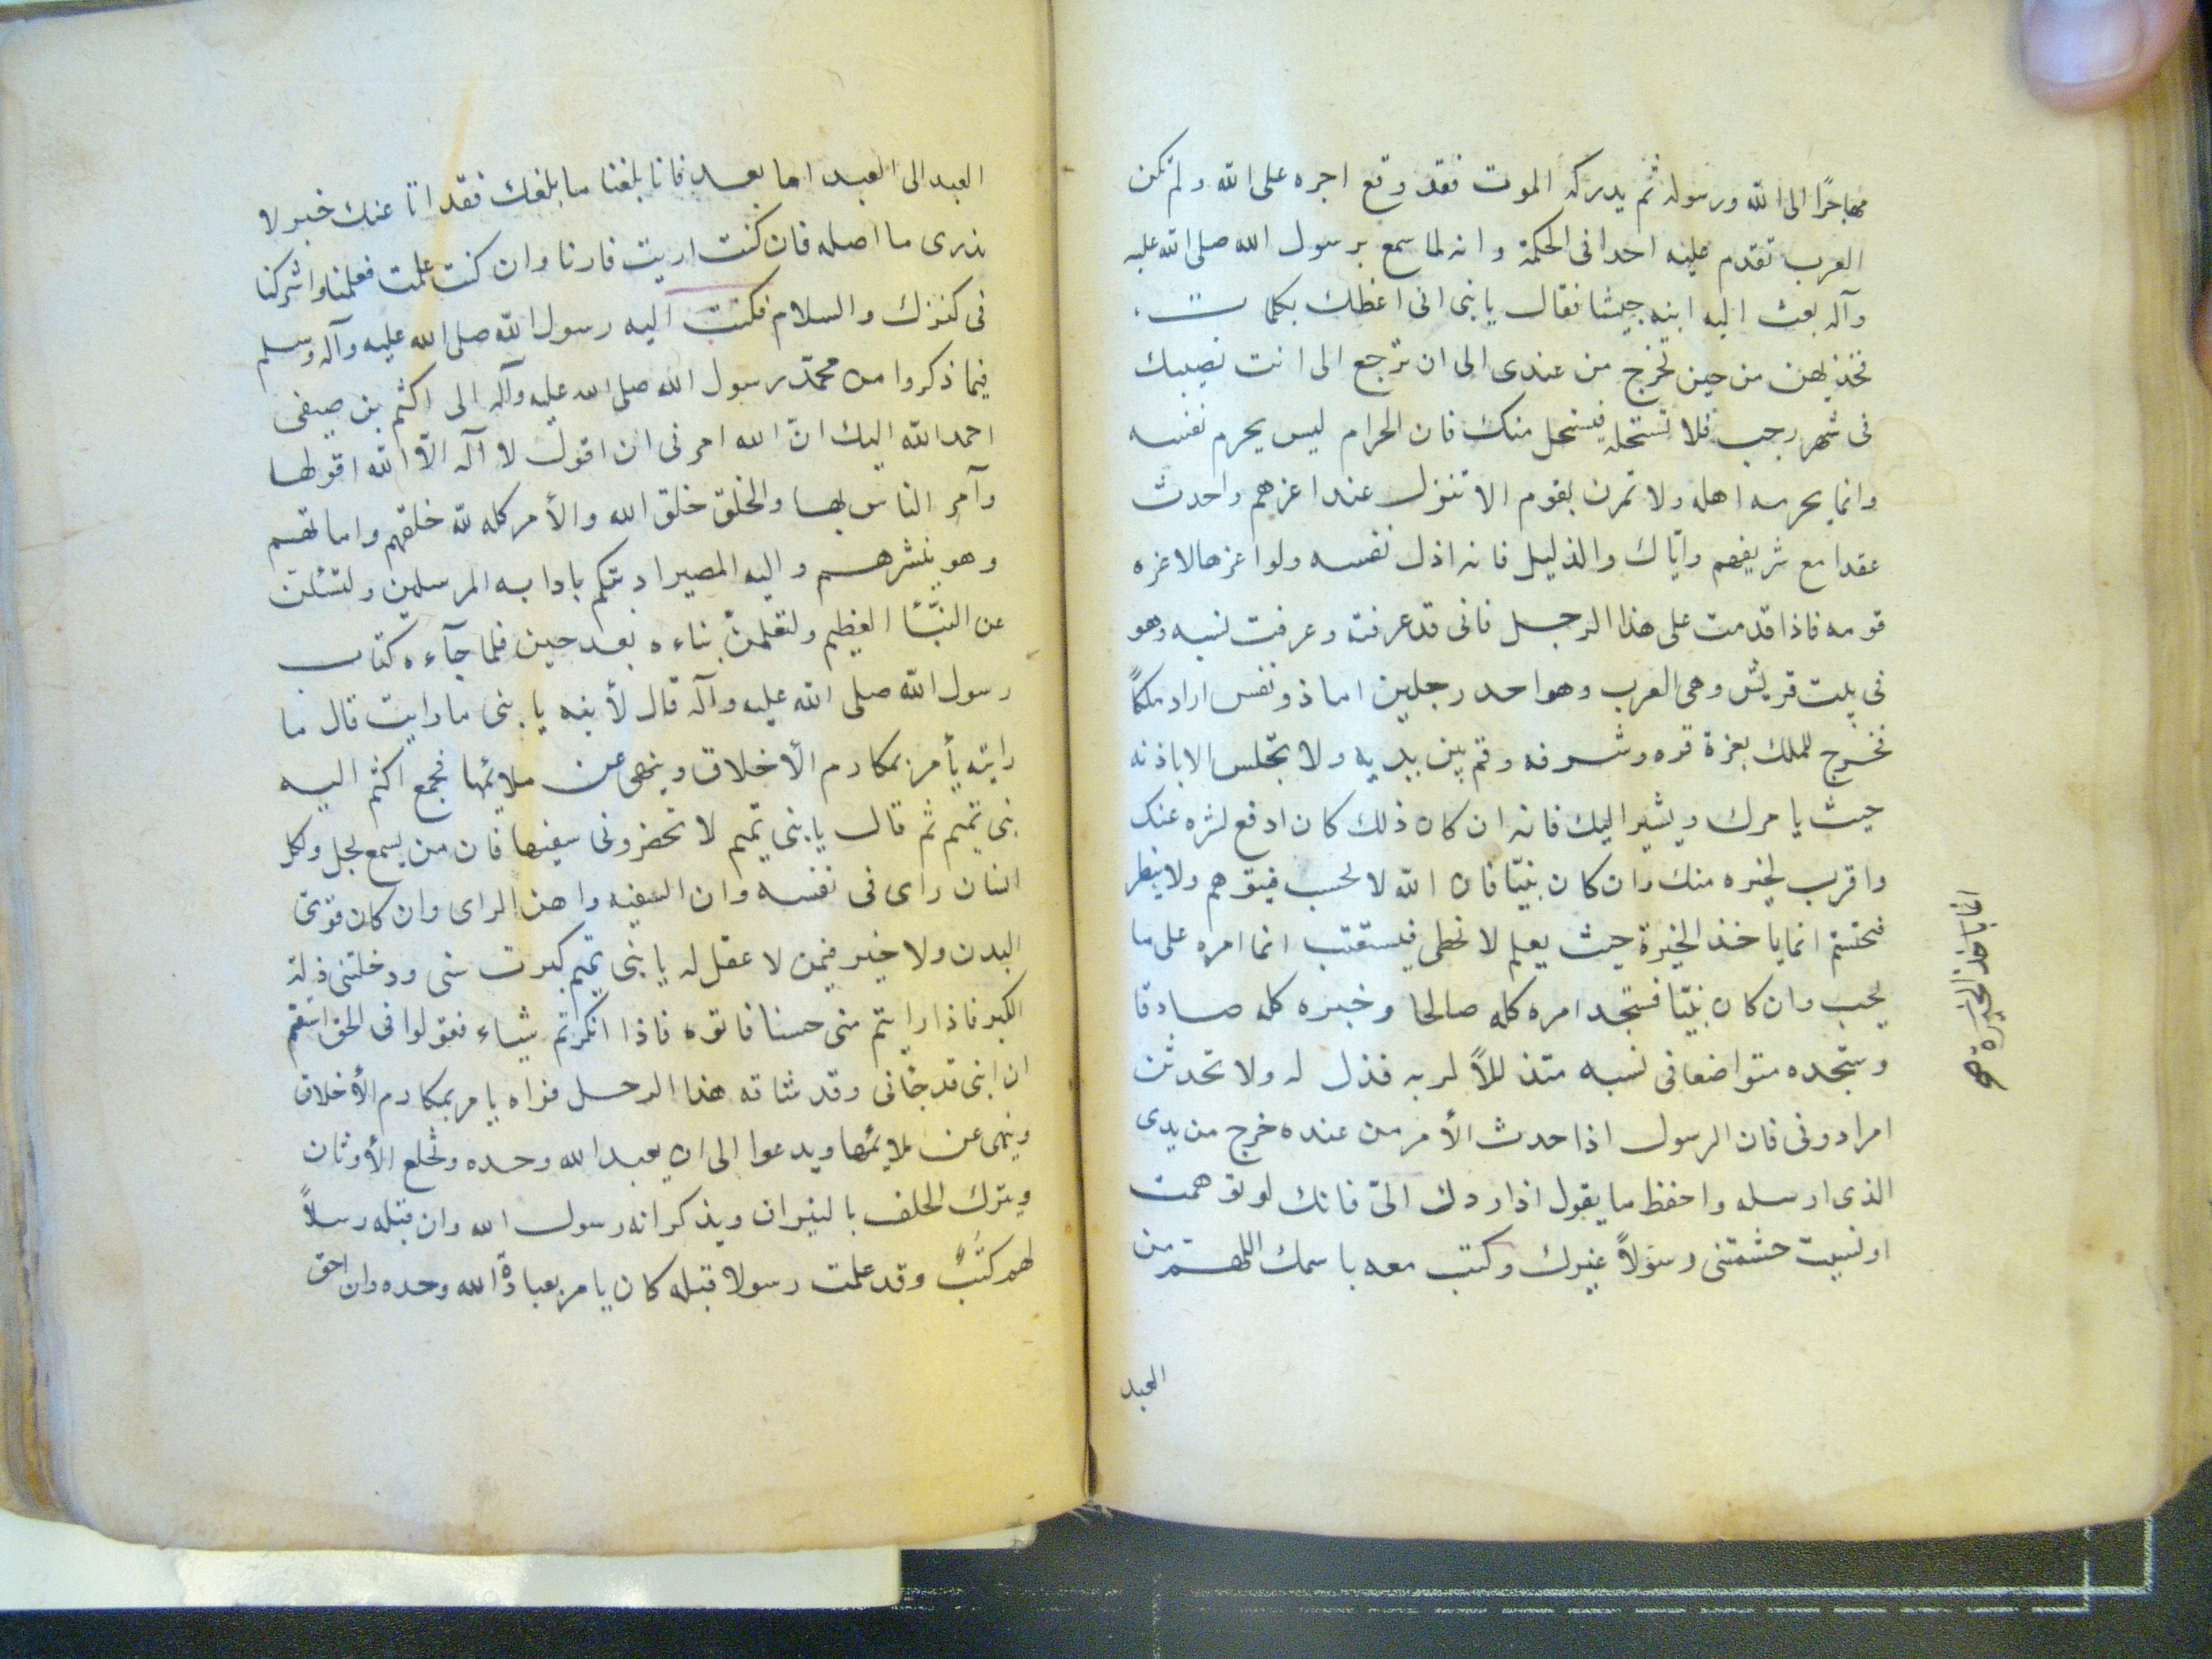 مهاجرًا الى الله ورسوله ثم يدركه الموت فقد وقع اجره على الله ولم تكن
العرب تقدم عليه احدا فى الحكمة وانه لما سمع برسول الله صلى الله عليه
وآله بعث اليه ابنه حبيشا فقال يا بنى انى اعظك بكلمات
فخذ بهن من حين تخرج من عندى الى ان ترجع الى انت نصيبك
فى شهر رجب فلا تستحله فيستحل منك فان الحرام ليس يحرم نفسه
وانما يحرمه اهله ولا تمرن بقوم الا تنزل عند اعزهم واحدث
عقدا مع شريفهم واياك والذليل فانه اذل نفسه ولو اعزها لاعزه
قومه فاذا قدمت على هذا الرجل فانى قد عرفته وعرفت نسبه وهو
فى بيت قريش وهى العرب وهو احد رجلين اما ذو نفس اراد ملكاً
فخرج للملك بعزة قوه وشرفه وقم بين يديه ولا تجلس الا باذنه
حيث يامرك ويشير اليك فانه ان كان ذلك كان ادفع لشره عنك
واقرب لخيره منك وان كان نبيّا فان الله لا يحب فيتوهم ولا ينظر
فيحتشم انما ياخذ الخيرة حيث يعلم لا يخطى فيستعتب انما امره على ما
يحب وان كان نبيّا فستجد امره كله صالحا وخبره كله صادقا
وستجده متواضعا فى نسبه متذللاً لربه فذل له ولا تحدثن
امرا دونى فان الرسول اذا حدث الأمر من عنده خرج من يدى
الذى ارسله واحفظ ما يقول اذا ردك الىّ فانك لو توهمت
او نسيت حشمتنى رسولاً غيرك وكتب معه باسمك اللهم من
العبد
العبد الى العبد اما بعد فانا بلغنا ما بلغك فقد اتا عنك خبر لا
ندرى ما اصله فان كنت اريت فارنا وان كنت علمت فعلمنا واشركنا
فى كنزك والسلام فكتب اليه رسول الله صلى الله عليه وآله وسلم
فيما ذكروا من محمّد رسول الله صلى الله عليه وآله الى اكثم بن صيفى
احمد الله اليك انّ الله امرنى ان اقول لا آله الاّ الله اقولها
وآمر الناس بها والخلق خلق الله والأمر كله لله خلقهم واماتهم
وهو ينشرهم واليه المصير ادبتكم باداب المرسلين ولتسئلن
عن النبّأ العظيم ولتعلمنّ بناءه بعد حين فلما جآءه كتاب
رسول الله صلى الله عليه وآله قال لأبنه يا بنى ما رايت قال ما
رايته يأمر بمكارم الأخلاق وينهى عن ملائمها فجمع اكثم اليه
بنى تميم ثم قال يا بنى تميم لا تحضرونى سفيها فان من يسمع يخل ولكل
انسان راى فى نفسه وان السفيه واهن الراى وان كان قوّى
البدن ولا خير فيمن لا عقل له يا بنى تميم كبرت سنى ودخلتنى ذلة
الكبر فاذا رايتم منى حسنا فاتوه فاذا انكرتم شياء فقولوا فى الحق استقم
ان ابنى قد جائنى وقد شافه هذا الرجل فراه يامر بمكارم الأخلاق
وينهى عن ملائمها ويدعوا الى ان يعبد الله وحده وتخلع الأوثان
ويترك الحلف بالنيران ويذكر انه رسول الله وان قبله رسلاً
لهم كتبٌ وقد علمت رسولا قبله كان يامر بعبادة الله وحده وان احق